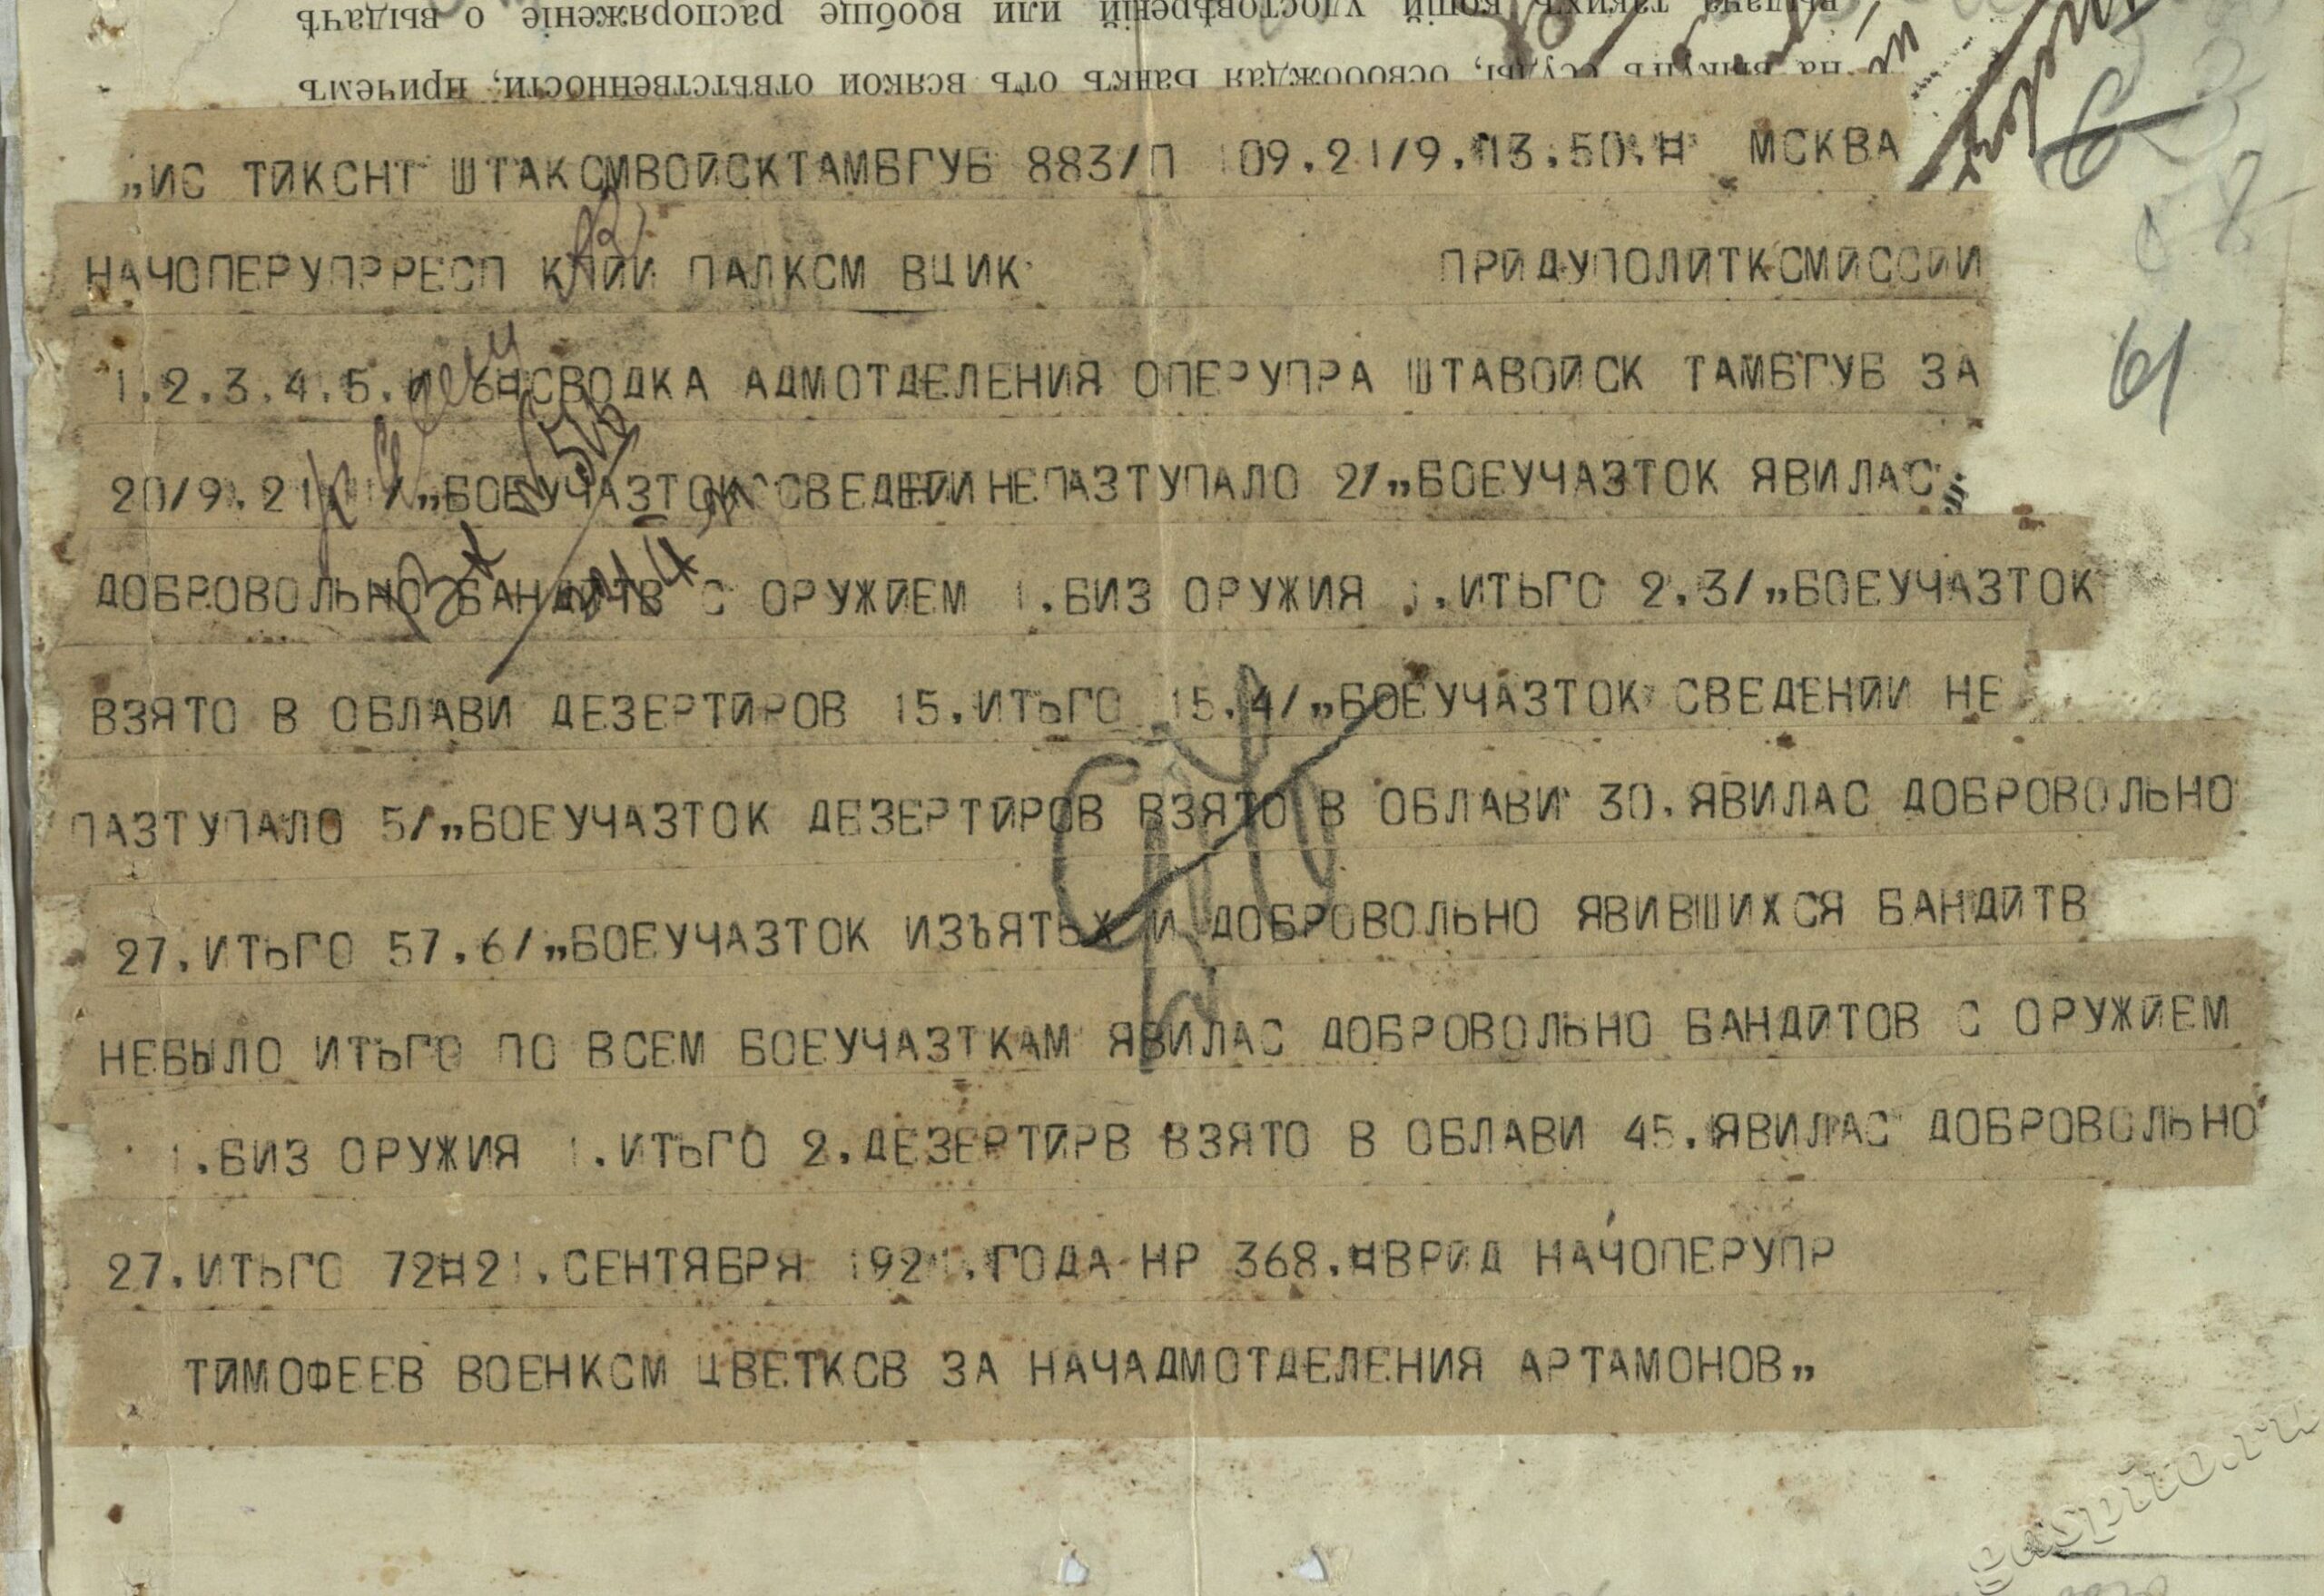 61
„ИС ТИКСНТ ШТАКСМВОЙСКТАМБГУБ 883/П 109.21/9.13.50.¤ МСКВА
НАЧОПЕРУПРРЕСП ПАЛКСМ ВЦИК ПРИДУПОЛИТКСМИССИИ
1.2.3.4.5.И 6¤СВОДКА АДМОТДЕЛЕНИЯ ОПЕРУПРА ШТАВОЙСК ТАМБГУБ ЗА
20/9.21. 1/„БОЕУЧАЗТОК СВЕДЕНИИ НЕПАЗТУПАЛО 2/„БОЕУЧАЗТОК ЯВИЛАС
ДОБРОВОЛЬНО БАНДИТВ С ОРУЖИЕМ 1.БИЗ ОРУЖИЯ 1.ИТЬГО 2.3/„БОЕУЧАЗТОК
ВЗЯТО В ОБЛАВИ ДЕЗЕРТИРОВ 15.ИТЬГО 15.4/„БОЕУЧАЗТОК СВЕДЕНИИ НЕ
ПАЗТУПАЛО 5/„БОЕУЧАЗТОК ДЕЗЕРТИРОВ ВЗЯТО В ОБЛАВИ 30.ЯВИЛАС ДОБРОВОЛЬНО
27.ИТЬГО 57.6/„БОЕУЧАЗТОК ИЗЪЯТЫХ И ДОБРОВОЛЬНО ЯВИВШИХСЯ БАНДИТВ
НЕБЫЛО ИТЬГО ПО ВСЕМ БОЕУЧАЗТКАМ ЯВИЛАС ДОБРОВОЛЬНО БАНДИТОВ С ОРУЖИЕМ
1.БИЗ ОРУЖИЯ 1.ИТЬГО 2.ДЕЗЕРТИРВ ВЗЯТО В ОБЛАВИ 45.ЯВИЛАС ДОБРОВОЛЬНО
27.ИТЬГО 72¤21.СЕНТЯБРЯ 1921.ГОДА НР 368.¤ВРИД НАЧОПЕРУПР
ТИМОФЕЕВ ВОЕНКСМ ЦВЕТКСВ ЗА НАЧАДМОТДЕЛЕНИЯ АРТАМОНОВ„
на выкупъ ссуды, освобождая Банкъ отъ всякой отвѣтственности, причемъ
выдача такихъ копій удостовѣреній или вообще распоряженіе о выдачѣ
gaspito.ru